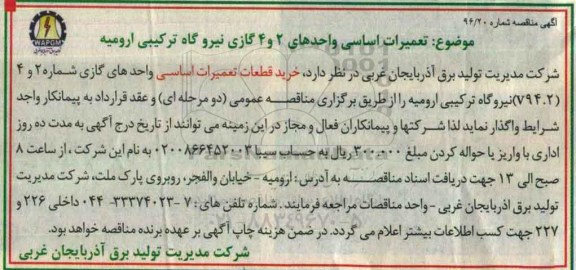 آگهی مناقصه شماره ۹۴/۲۰
WAPGM
موضوع: تعمیرات اساسی واحدهای ۲ و۴ گازی نیرو گاه ترکیبی ارومیه
شرکت مدیریت تولید برق آذربایجان غربی در نظر دارد، خرید قطعات تعمیرات اساسی واحد های گازی شماره ۲ و ۴
(V۹۴.۲)نیروگاه ترکیبی ارومیه را از طریق برگزاری مناقصه عمومی (دو مرحله ای) و عقد قرارداد به پیمانکار واجد
شرایط واگذار نماید لذا شرکتها و پیمانکاران فعال و مجاز در این زمینه می توانند از تاریخ درج آگهی به مدت ده روز
اداری با واریز یا حواله کردن مبلغ ۳۰۰.۰۰۰ ریال به حساب سیبا ۰۲۰۰۸۶۶۴۵۲۰۰۳ به نام این شرکت ، از ساعت ۸
صبح الی ۱۳ جهت دریافت اسناد مناقصه به آدرس : ارومیه - خیابان والفجر، روبروی پارک ملت، شرکت مدیریت
تولید برق اذربایجان غربی - واحد مناقصات مراجعه فرمایند. شماره تلفن های : ۷-۳۳۳۷۴۰۲۳- ۰۴۴ داخلی ۲۲۶ و
۲۲۷ جهت کسب اطلاعات بیشتر اعلام می گردد. در ضمن هزینه چاپ آگهی بر عهده برنده مناقصه خواهد بود.
شرکت مدیریت تولید برق آذربایجان غربی